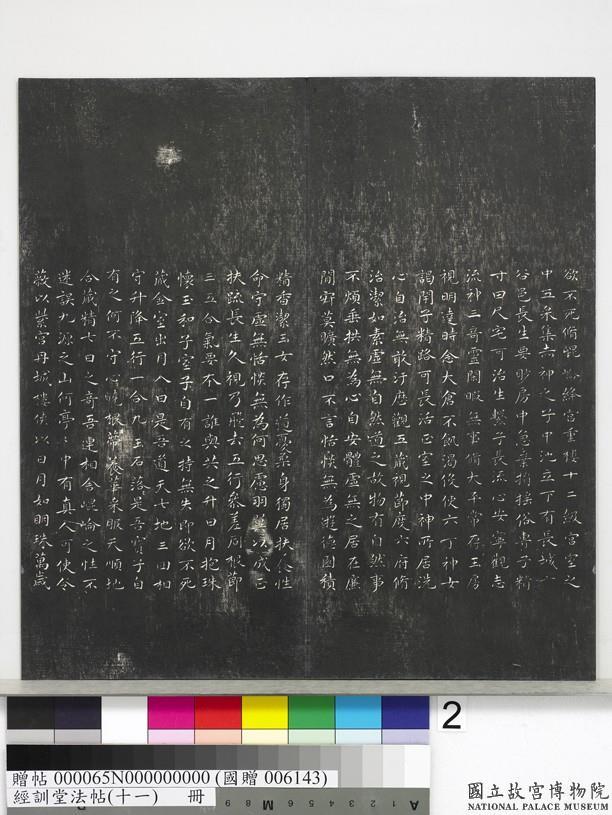 欲不死脩崐崘絳宮重樓十二級宮室之
中五采集赤神之子中池立下有長城
谷邑長生要眇房中急棄捐搖俗專子精
寸田尺宅可治生繫子長流心安寧觀志
流神三奇靈閑暇無事脩太平常存玉房
視明達時念大倉不飢渴役使六丁神女
謁閉子精路可長活正室之中神所居洗
心自治無敢汙歷觀五藏視節度六府脩
治潔如素虛無自然道之故物有自然事
不煩垂拱無為心自安體虛無之居在廉
間寂莫曠然口不言恬惔無為遊德園積
精香潔玉女存作道憂柔身獨居扶養性
命守虛無恬惔無為何思慮羽翼以成正
扶疏長生久視乃飛去五行參差同根節
三五合氣要本一誰與共之升日月抱珠
懷玉和子室子自有之持無失即欲不死
藏金室出月入日是吾道天七地三回相
守升降五行一合九玉石落是吾寶子自
有之何不守心曉根蔕養華采服天順地
合藏精七日之奇吾連相合崐崘之性不
迷誤九源之山何亭亭中有真人可使令
蔽以紫宮丹城樓俠以日月如明珠萬歲
2
贈帖 000065N000000000 (國贈 006143)
經訓堂法帖(十一) 冊
國立故宮博物院
NATIONAL PALACE MUSEUM